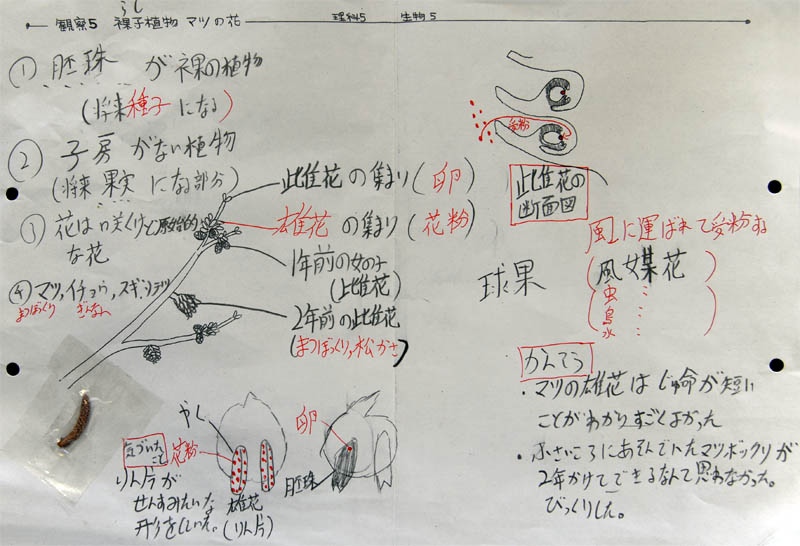 らし
観察5 裸子植物 マツの花
理科5 生物5
① 胚珠 が 裸の植物
(将来 種子 になる)
② 子房 がない植物
(将来 果実 になる部分)
③ 花は咲くけど原始的
な花
④ マツ,イチョウ,スギ,ソテツ
まつぼっくり ぎんなん
雌花の集まり(卵)
雄花の集まり(花粉)
1年前の女の子
(雌花)
2年前の雌花
(まつぼっくり,松かさ)
受粉
雌花の
断面図
風に運ばれて受粉する
球果
(風媒花)
虫 〃
鳥 〃
水 〃
かんそう
・マツの雄花はじゅ命が短い
ことがわかりすごくよかった
・小さいころにあそんでいたマツボックリが
2年かけてできるなんて思わなかった。
びっくりした。
やく
気づいた
こと
花粉
りん片が
せんすみたいな
形をしていた。
雄花
(りん片)
卵
胚珠